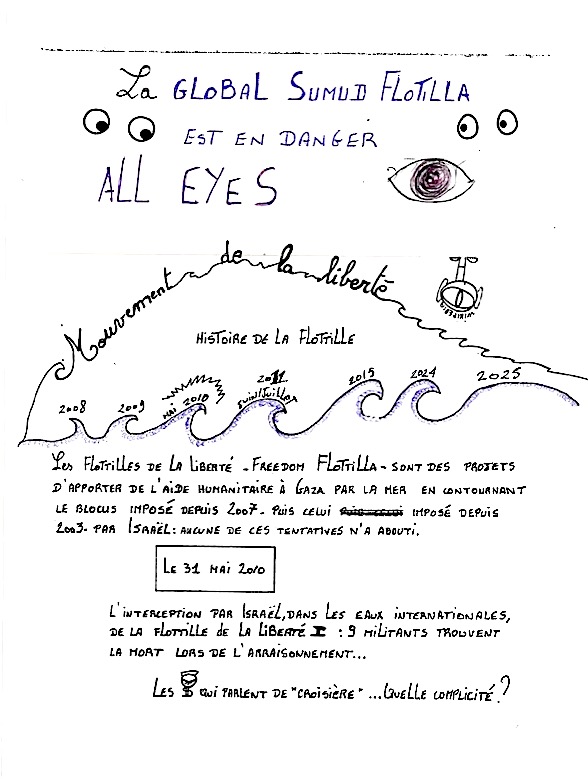 La GLOBAL SUMUD FLOTILLA
EST EN DANGER
ALL EYES
Mouvement de la liberté
HISTOIRE DE LA FLOTTILLE
2008
2009
MAI 2010
2011
Juin/Juillet
2015
2024
2025
LES FLOTTILLES DE LA LIBERTÉ - FREEDOM FLOTTILLA - SONT DES PROJETS
D'APPORTER DE L'AIDE HUMANITAIRE À GAZA PAR LA MER EN CONTOURNANT
LE BLOCUS IMPOSÉ DEPUIS 2007- PUIS CELUI IMPOSÉ DEPUIS
2023- PAR ISRAËL: AUCUNE DE CES TENTATIVES N'A ABOUTI.
LE 31 MAI 2010
L'INTERCEPTION PAR ISRAËL, DANS LES EAUX INTERNATIONALES,
DE LA FLOTTILLE DE LA LIBERTÉ I : 9 MILITANTS TROUVENT
LA MORT LORS DE L'ARRAISONNEMENT...
LES QUI PARLENT DE "CROISIÈRE" ...QUELLE COMPLICITÉ ?